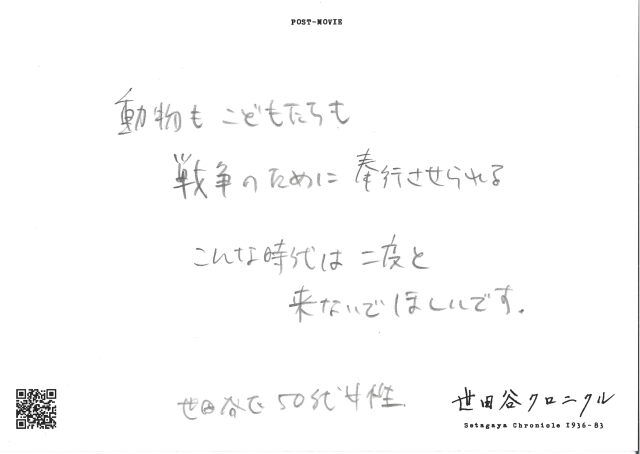 POST-MOVIE
動物も こどもたちも
戦争のために 奉行させられる
こんな時代は 二度と
来ないでほしいです。
世田谷区 50代女性
世田谷クロニクル
Setagaya Chronicle 1936-83